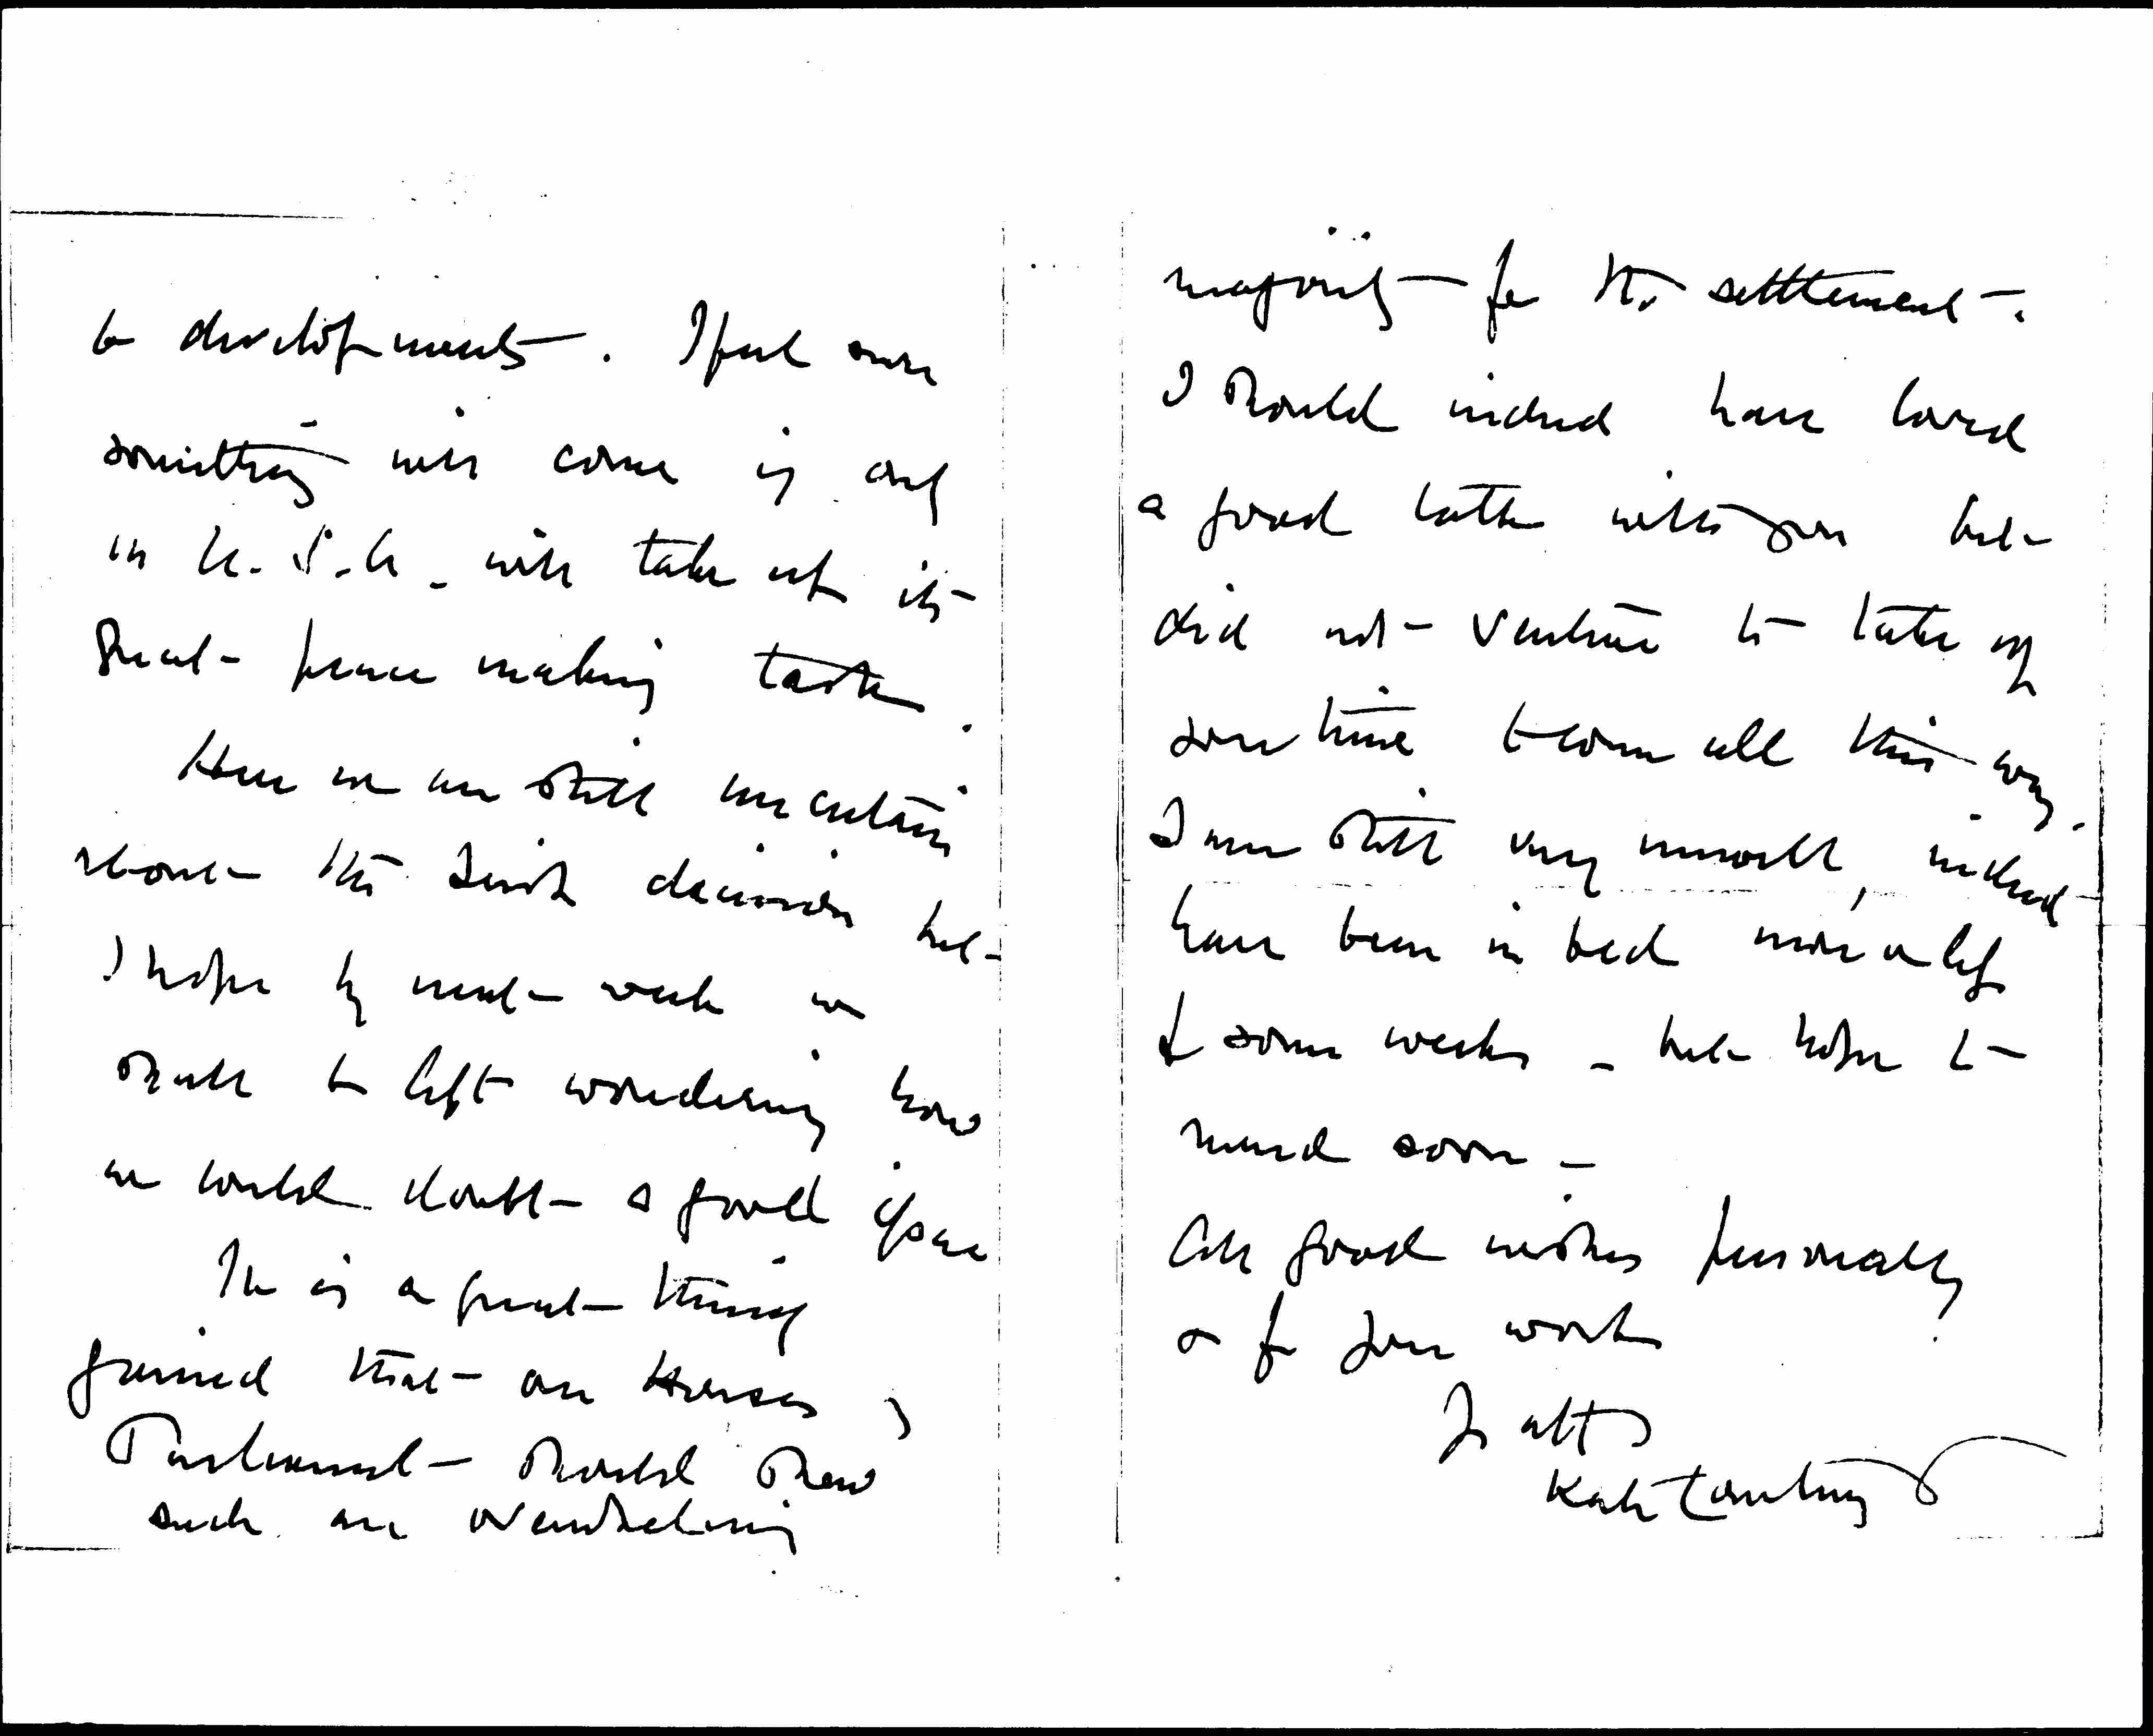 to developments. I feel sure
something will come if only
in U.S.A. will take up its
great peace making task.
Here we are still uncertain
about the Irish decision but
I hope by next week we
shall be left wondering how
we could doubt a good issue
It is a great thing
gained that our Houses of
Parliament should show
such an overwhelming
majority for the settlement.
I should indeed have loved
a good talk with you but
did not venture to take up
your time to come all this way.
I am still very unwell, indeed
have been in bed more or less
for some weeks - but hope to
mend soon -
All good wishes personally
& for your work
Yrs affly
Kate Courtney